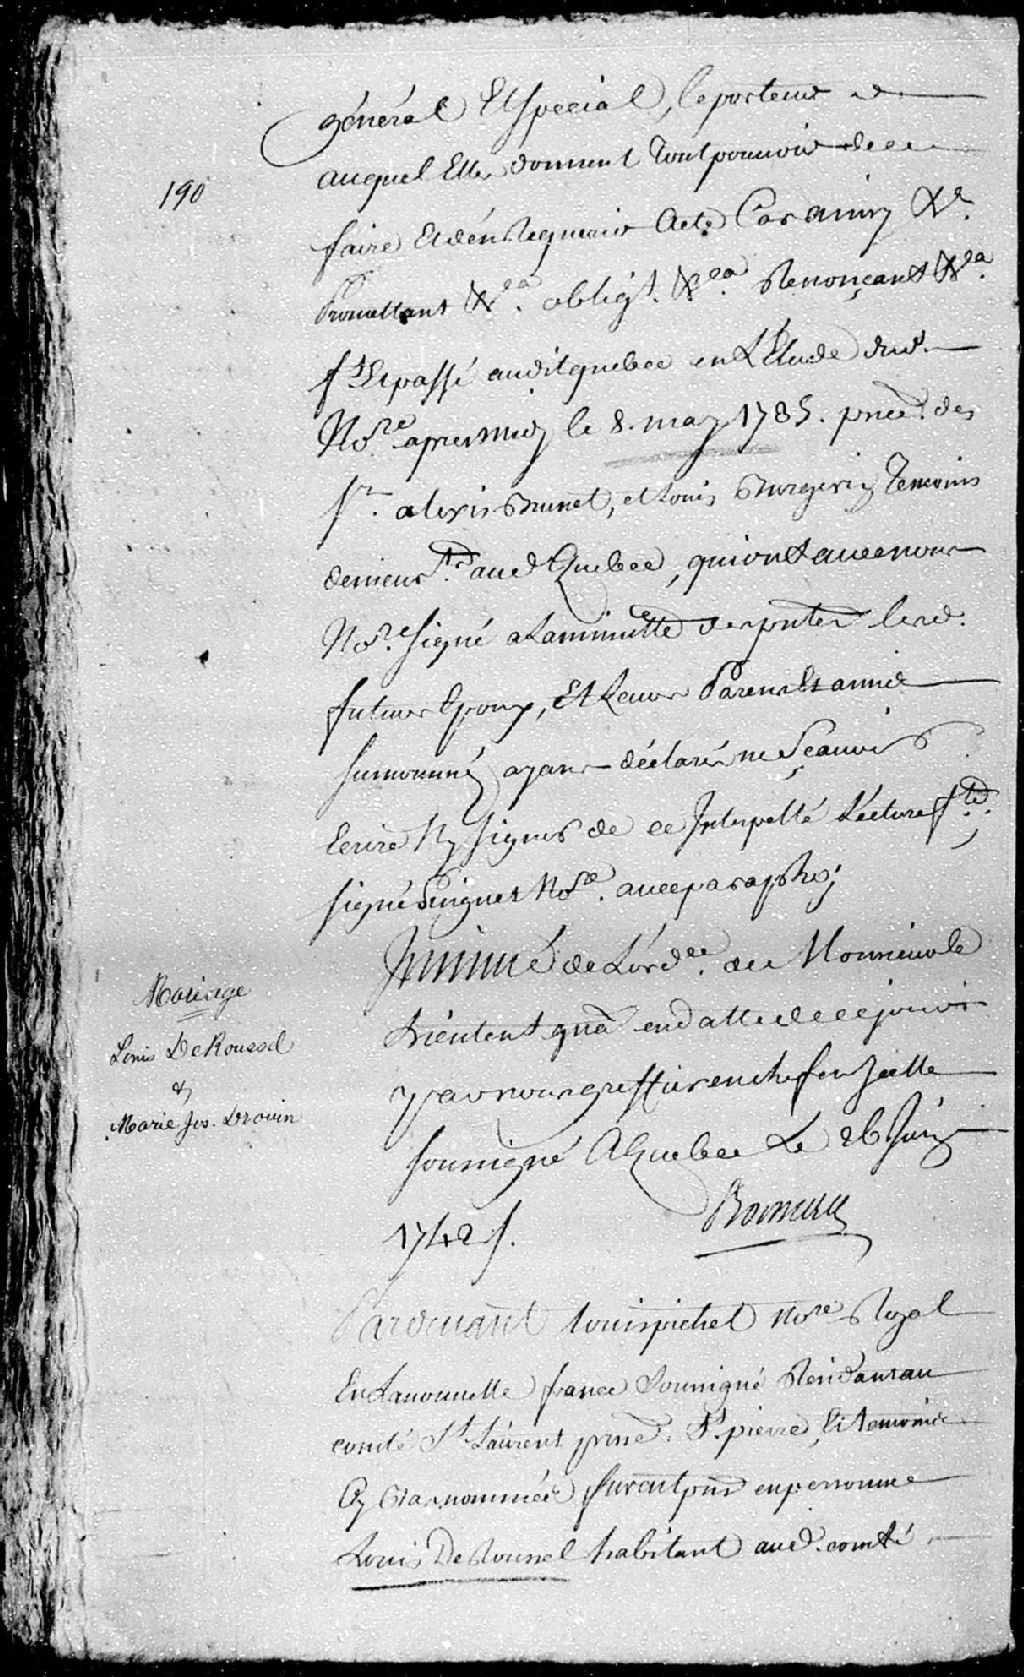 190
général Et special, le porteur
auquel Elles donnent Tout pouvoir de ce
faire Et d'en Requerir Acte Car ainsy &c.
Promettant &ca. obligt. &ca. Renonçant &ca.
ft. Et passé audit quebec en L'Etude dud.
No.re apres midy le 8. may 1735. pnce. des
Sr. alexis Brunet, et Louis Burgevin Temoins
demeurts. aud Quebec, qui ont avec nous
No.re signé a la minutte des pntes lesd.
futurs Epoux, Et Leurs Parens Et amis
surnommés ayans déclaré ne Sçavoir
Ecrire Ny signer de ce Interpellé Lecture fte.
signé Pinguet No.re avec paraphe;
Insinué de L'ordce. de Monsieur le
Lieutent. gnal en datte de ce jour
par nous greffier en chef en Icelle
soussigné A Quebec Le 26 Juin
1742 /.
Boisseau
Mariage
Louis DeRoussel
&
Marie Jos. Drouin
Pardevant Louis pichet No.re Royal
En La nouvelle france Soussigné Residant au
comté St. Laurent parsse. St. pierre, Et temoins
Cy bas nommés furent pnt en personne
Louis De Roussel habitant aud. comté